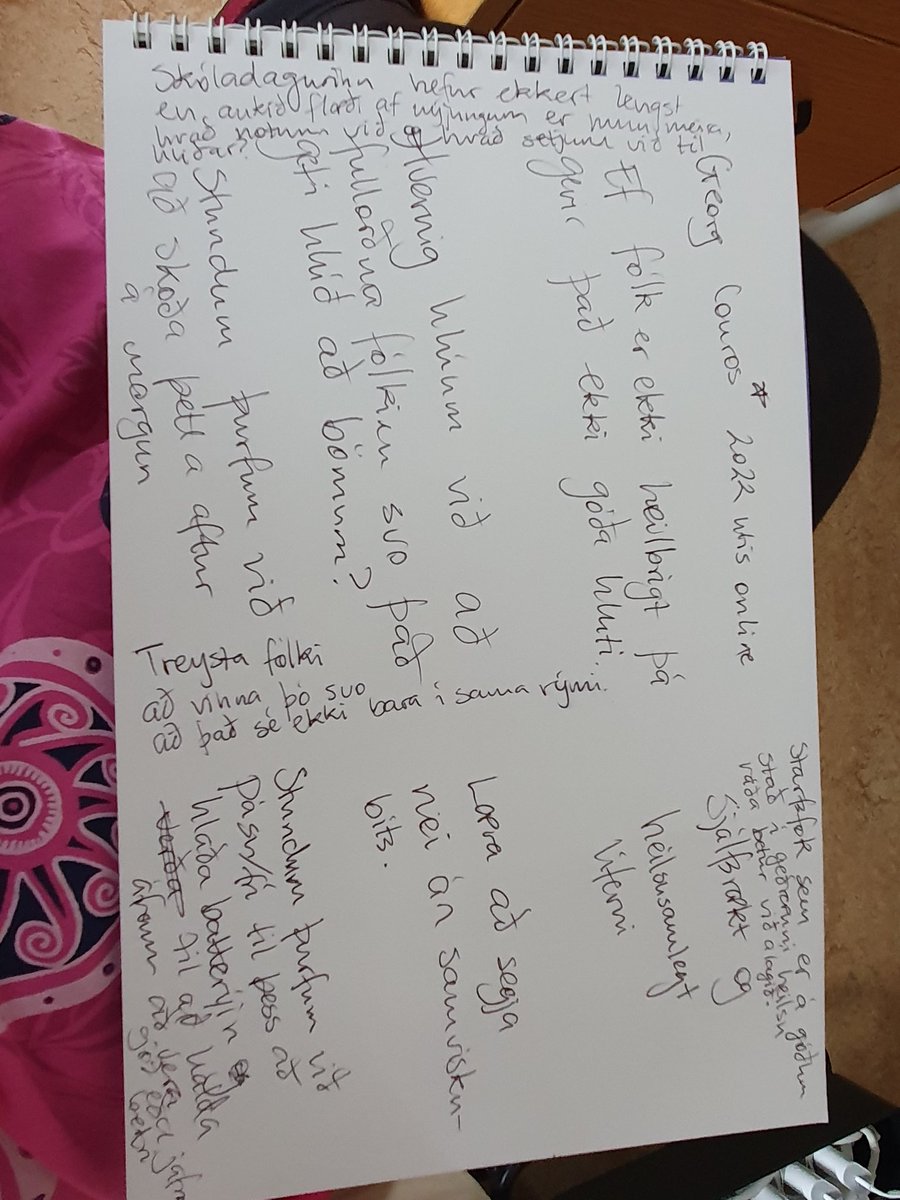 Georg Couros * 2022 utis online
Ef fólk er ekki heilbrigt þá
gerir það ekki góða hluti.
Hvernig hlúum við að
fullorðna fólkinu svo það
geti hlúð að börnum?
Stundum þurfum við
að skoða þetta aftur
á morgun
Skóladagurinn hefur ekkert lengst
en aukið flæði af nýjungum er mun meira,
hvað notum við og hvað setjum við til
hliðar?
Treysta fólki
að vinna þó svo
að það sé ekki bara í sama rými.
Starfsfók sem er á góðum
stað í geðrænni heilsu
ráða betur við álagið.
Sjálfrækt og
heilsusamlegt
líferni
Læra að segja
nei án samvisku-
bits.
Stundum þurfum við
pásur/frí til þess að
hlaða batteríin
til að halda
áfram að vera
góð eða jafn
betri